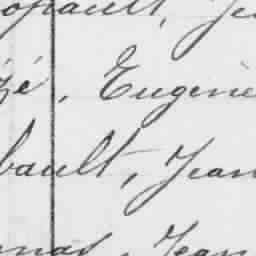 opault, Je
zé, Eugène
bault, Jean
mas, Jean